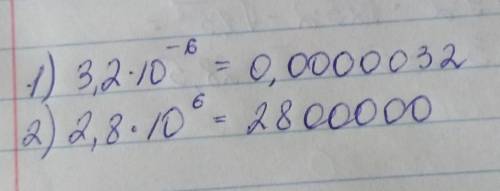 1) 3,2·10⁻⁶ = 0,0000032
2) 2,8·10⁶ = 2800000